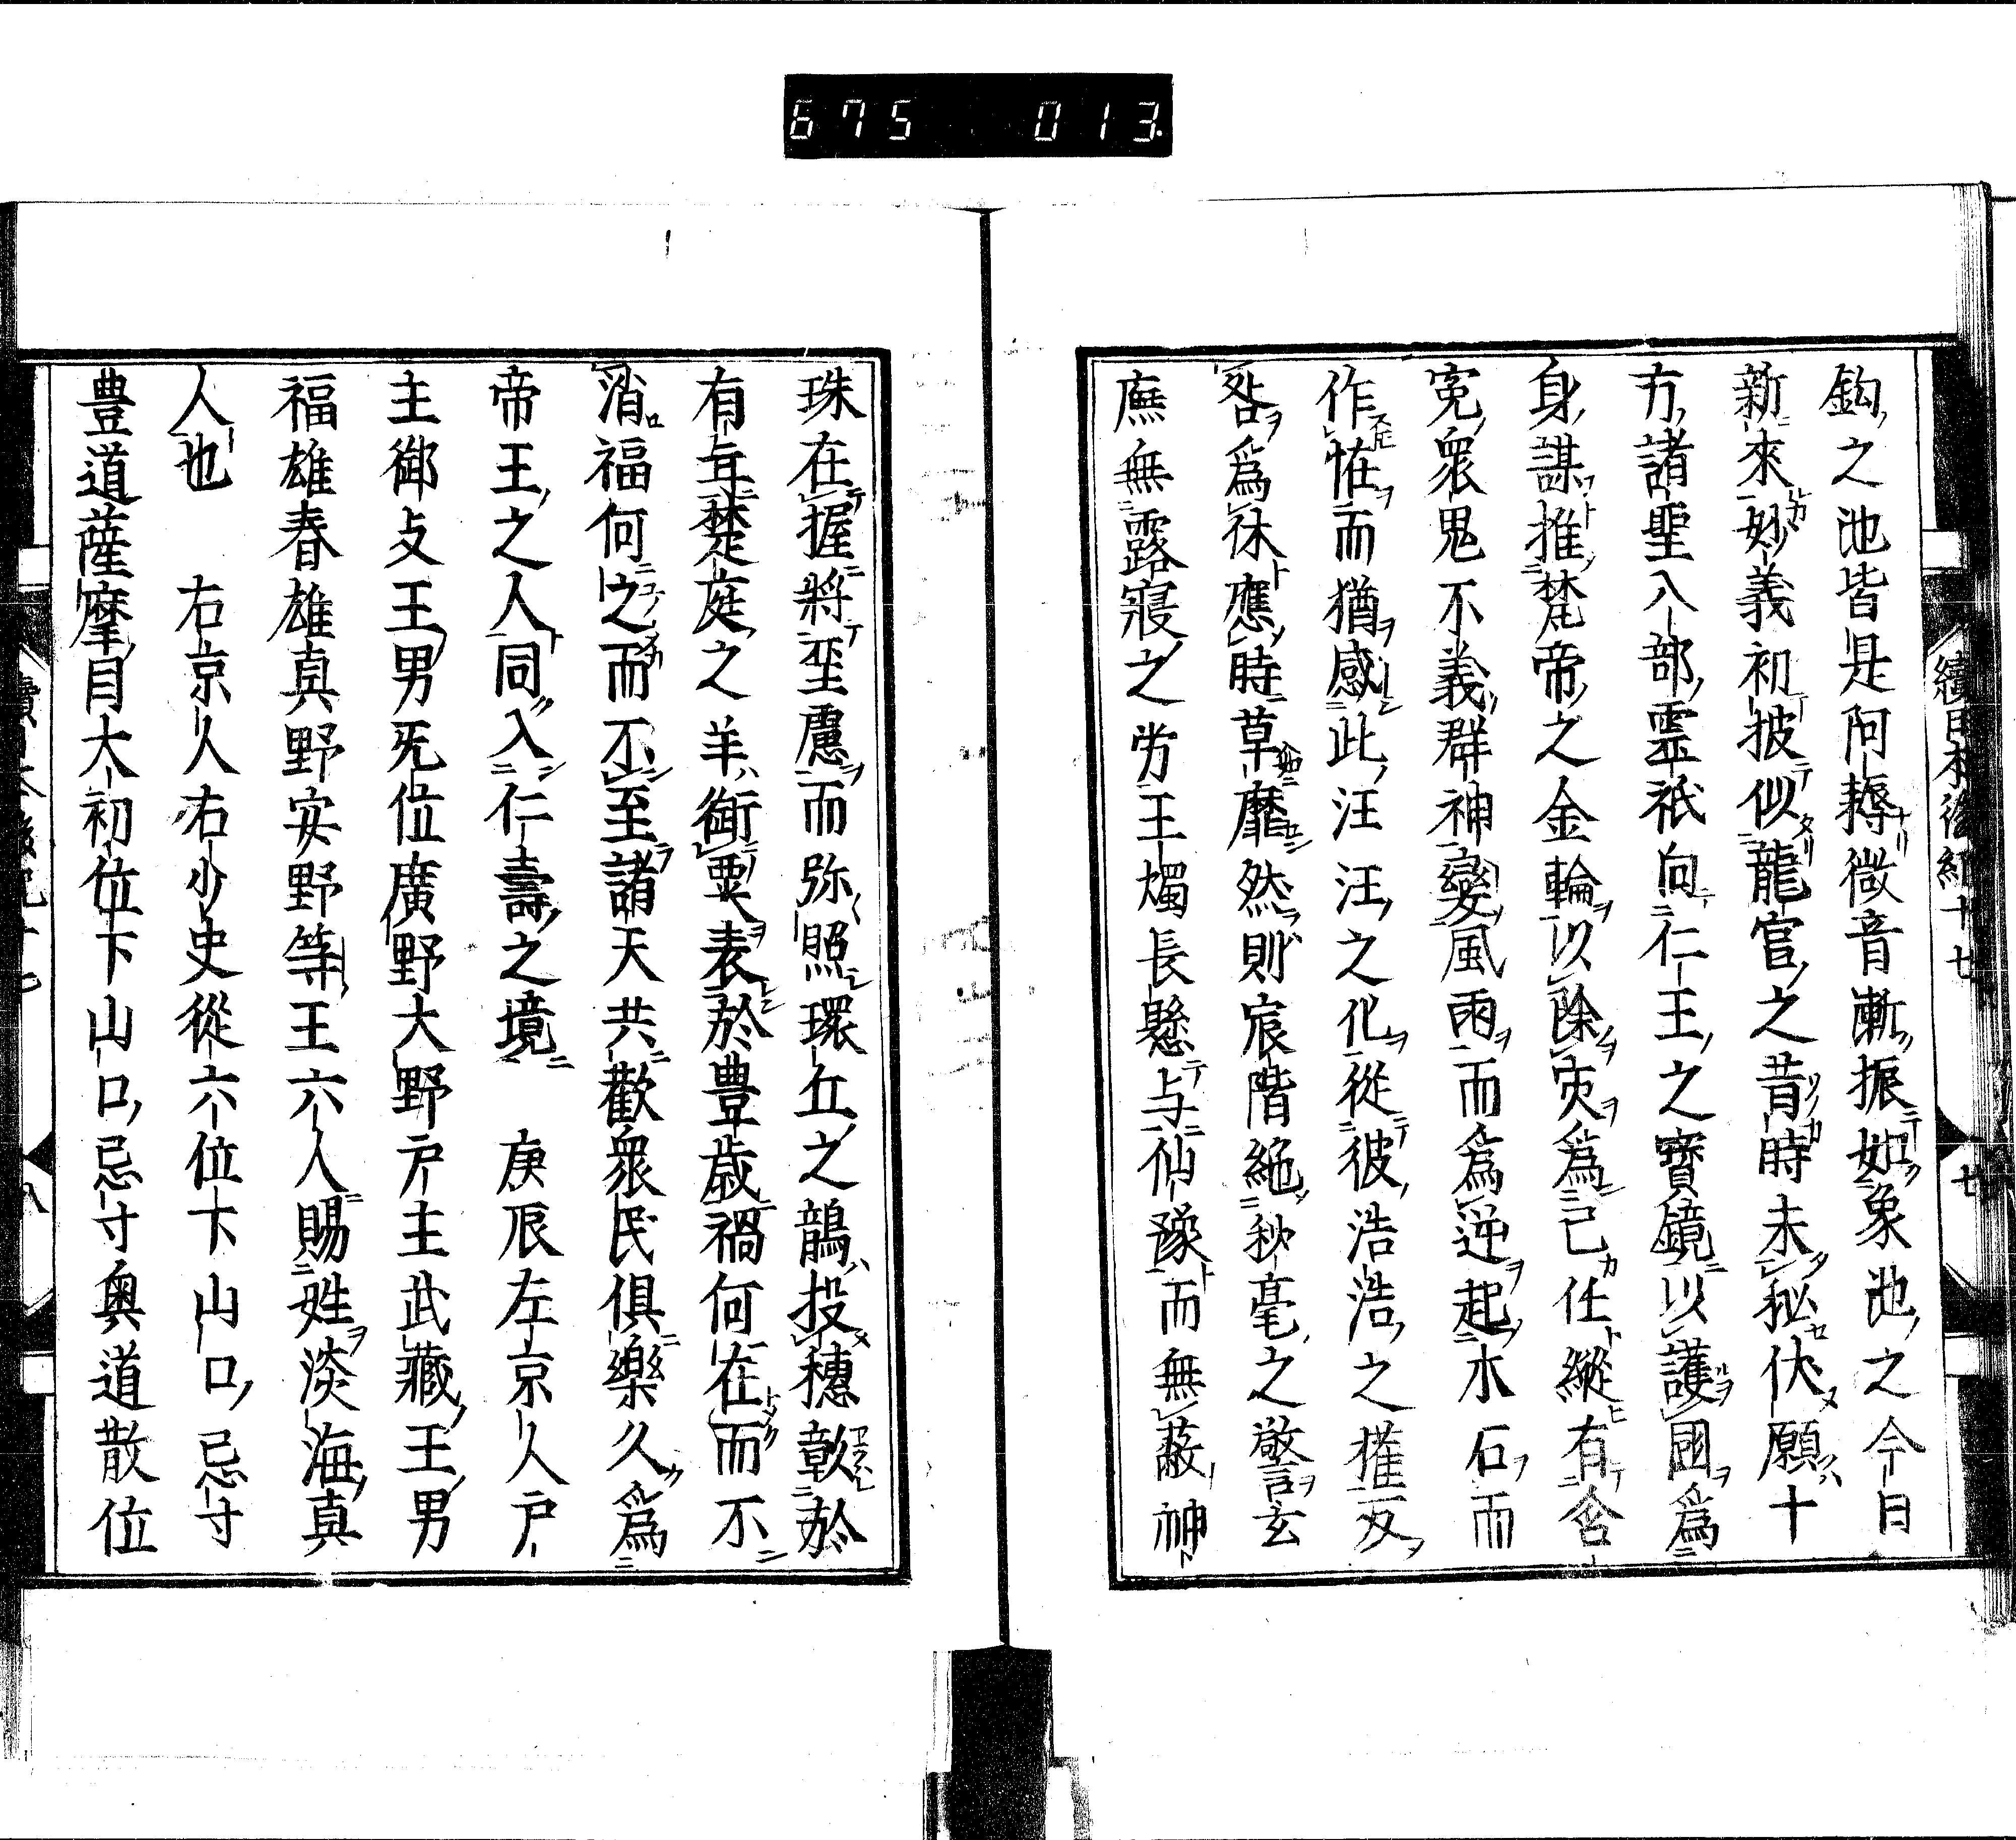 675 013
續日本後紀十七
七
鈎之池皆是阿耨微音漸振如象池之今日
新來妙義初披似龍宮之昔時未秘伏願十
方諸聖八部霊祇向仁王之寶鏡以護國爲
身謀推梵帝之金輪以除灾爲己任縱有含
寃衆鬼不義群神變風雨而爲逆起水石而
作恠而猶感此汪汪之化從彼浩浩之
咎爲休應時草靡然則宸階絶秒毫之警玄
廡無露寢之労王燭長懸与仙豫而無蔽神
珠在握將聖慮而弥照環丘之鵲投穗彰於
有年楚庭之羊銜粟表於豊歳禍何在而不
消福何之而不至諸天共歡衆民俱樂久爲
帝王之人同入仁壽之境　庚辰左京人戸
主御攴王男旡位廣野大野戸主武藏王男
福雄春雄真野安野等王六人賜姓淡海真
人也　右京人右少史從六位下山口忌寸
豊道薩摩目大初位下山口忌寸奥道散位
八